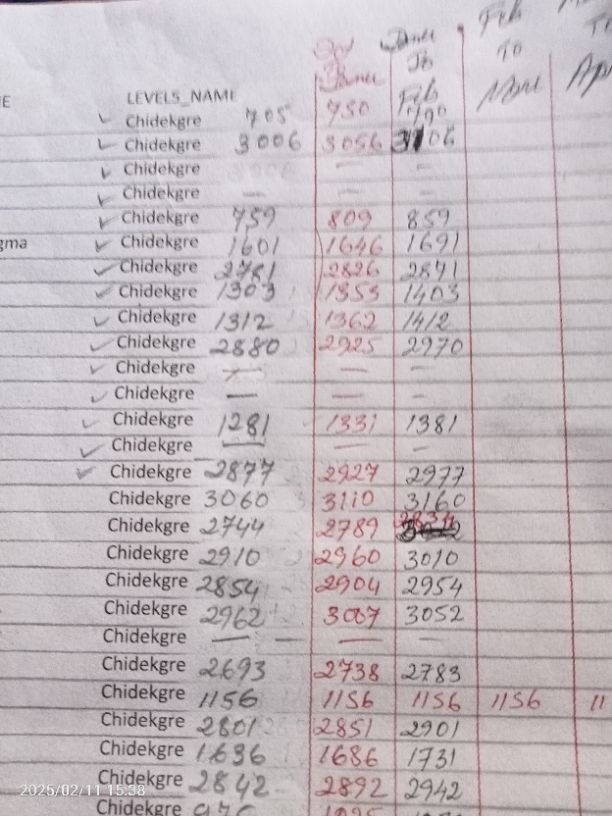 Feb
To
To
Feb
Apri
E LEVELS_NAME
✓ Chidekgre 705 750 790
✓ Chidekgre 3006 3056 3106
✓ Chidekgre — —
✓ Chidekgre — — —
✓ Chidekgre 759 809 859
gma ✓ Chidekgre 1601 1646 1691
✓ Chidekgre 2781 2826 2841
✓ Chidekgre 1303 1353 1403
✓ Chidekgre 1312 1362 1412
✓ Chidekgre 2880 2925 2970
✓ Chidekgre — — —
✓ Chidekgre — — —
✓ Chidekgre 1281 1331 1381
✓ Chidekgre — — —
✓ Chidekgre 2877 2927 2977
Chidekgre 3060 3110 3160
Chidekgre 2744 2789 2834
Chidekgre 2910 2960 3010
Chidekgre 2854 2904 2954
Chidekgre 2962 3007 3052
Chidekgre — — —
Chidekgre 2693 2738 2783
Chidekgre 1156 1156 1156 1156 11
Chidekgre 2801 2851 2901
Chidekgre 1636 1686 1731
Chidekgre 2842 2892 2942
2025/02/11 15:38
Chidekgre